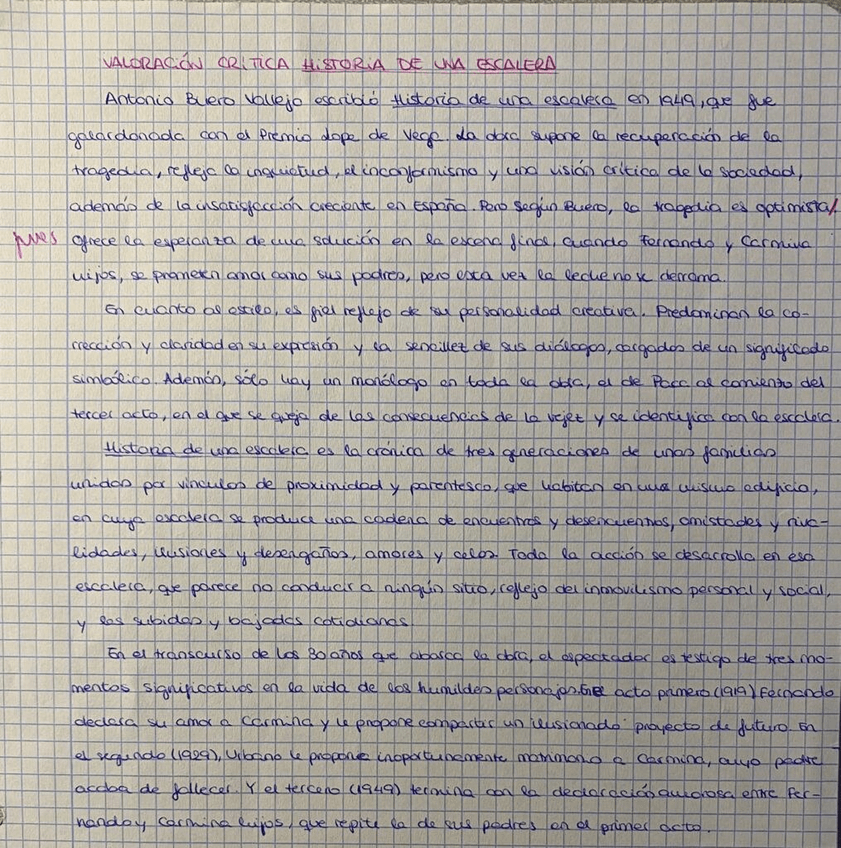 VALORACIÓN CRÍTICA HISTORIA DE UNA ESCALERA
Antonio Buero Vallejo escribió Historia de una escalera en 1949, que fue
galardonada con el Premio Lope de Vega. La obra supone la recuperación de la
tragedia, refleja la inquietud, el inconformismo y una visión crítica de la sociedad,
además de la insatisfacción creciente en España. Pero según Buero, la tragedia es optimista,
pues ofrece la esperanza de una solución en la escena final, cuando Fernando y Carmina
hijos, se prometen amor como sus padres, pero esta vez la leche no se derrama.
En cuanto al estilo, es fiel reflejo de su personalidad creativa. Predominan la co-
rrección y claridad en su expresión y la sencillez de sus diálogos, cargados de un significado
simbólico. Además, sólo hay un monólogo en toda la obra, el de Paca al comienzo del
tercer acto, en el que se queja de las consecuencias de la vejez y se identifica con la escalera.
Historia de una escalera es la crónica de tres generaciones de unas familias
unidas por vínculos de proximidad y parentesco, que habitan en un mismo edificio,
en cuya escalera se produce una cadena de encuentros y desencuentros, amistades y riva-
lidades, ilusiones y desengaños, amores y celos. Toda la acción se desarrolla en esa
escalera, que parece no conducir a ningún sitio, reflejo del inmovilismo personal y social,
y las subidas y bajadas cotidianas.
En el transcurso de los 30 años que abarca la obra, el espectador es testigo de tres mo-
mentos significativos en la vida de los humildes personajes. En el acto primero (1919) Fernando
declara su amor a Carmina y le propone compartir un ilusionado proyecto de futuro. En
el segundo (1929), Urbano le propone inoportunamente matrimonio a Carmina, cuyo padre
acaba de fallecer. Y el tercero (1949) termina con la declaración amorosa entre Fer-
nando y Carmina hijos, que repite la de sus padres en el primer acto.